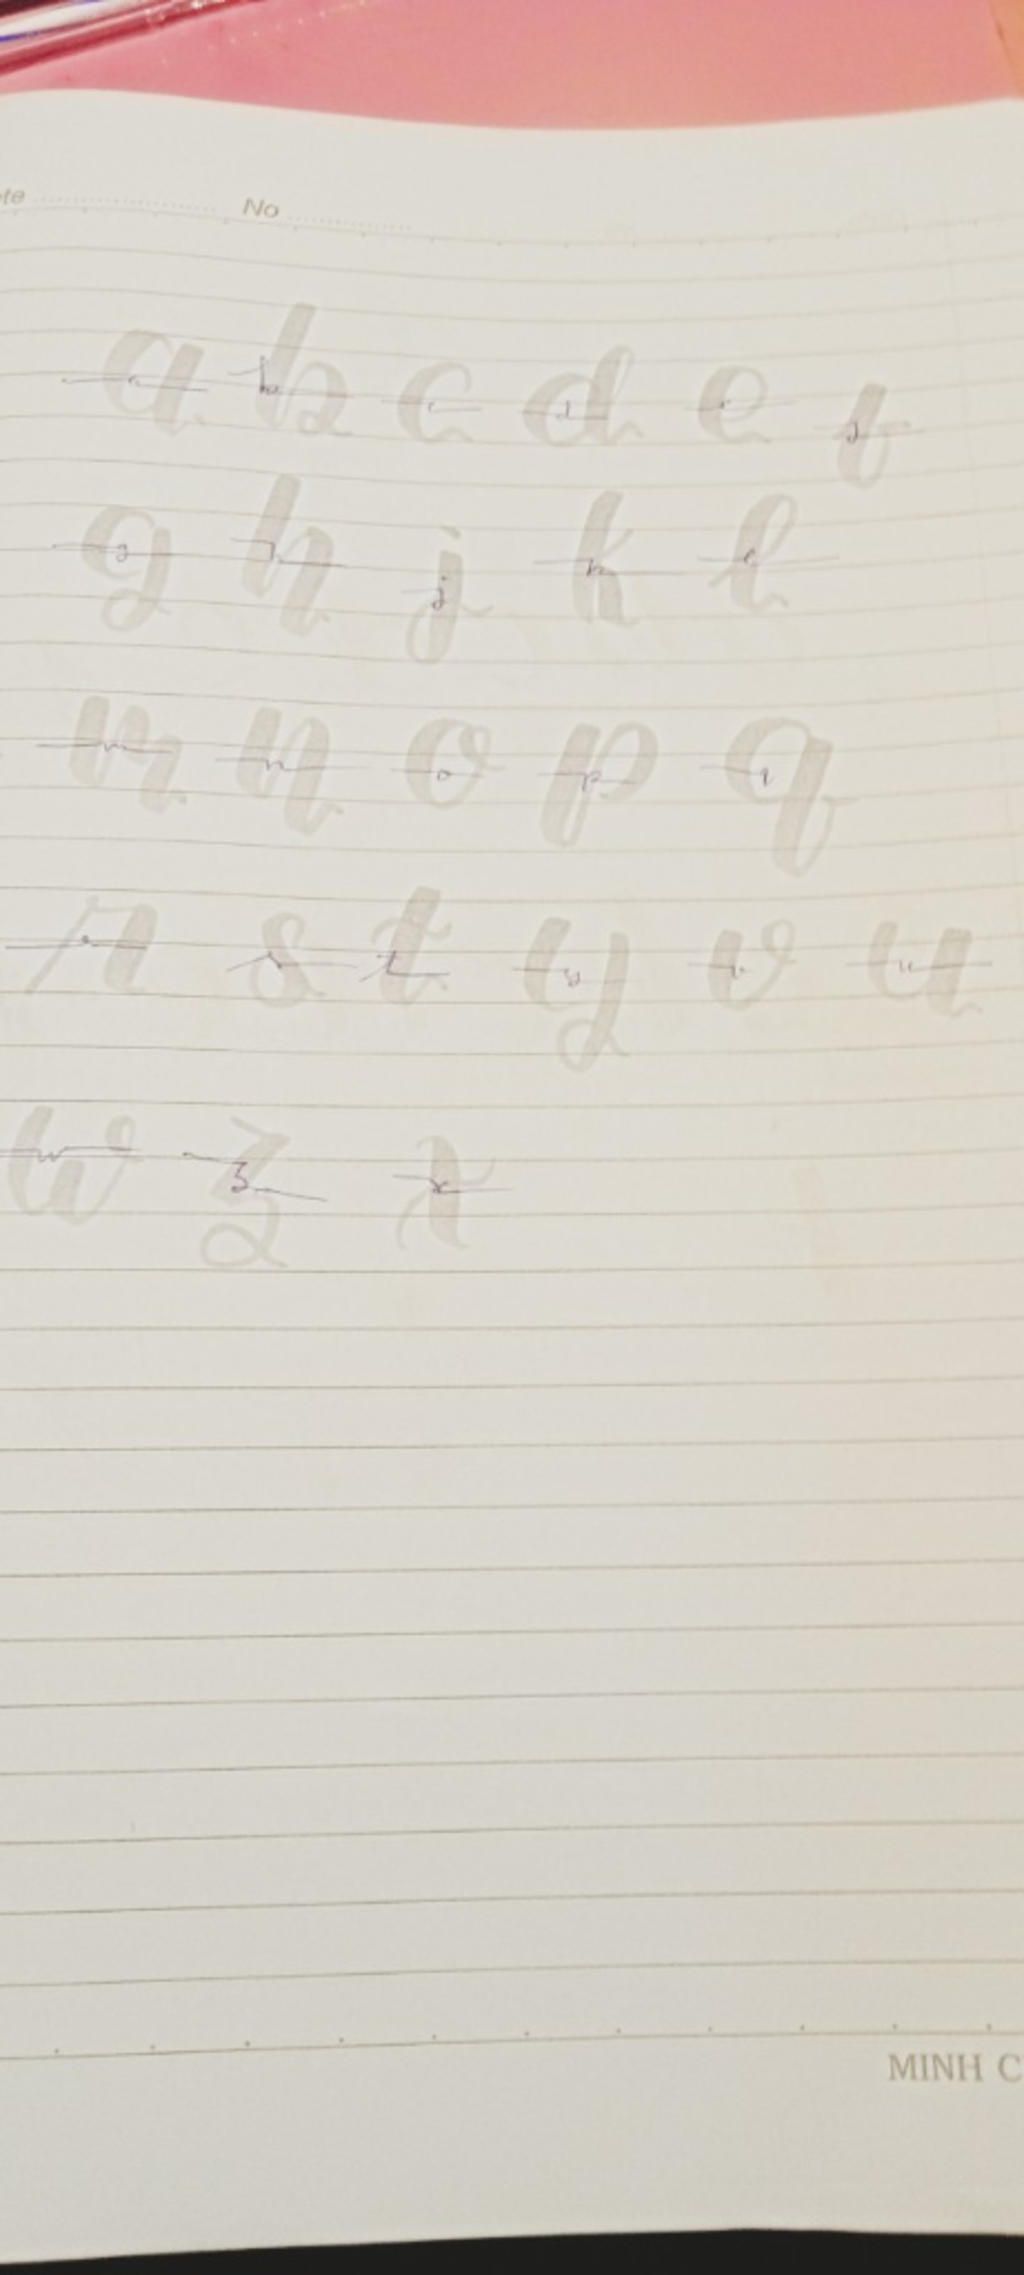 No
a b c d e f
g h j k l
m n o p q
r s t y v u
w z x
MINH C